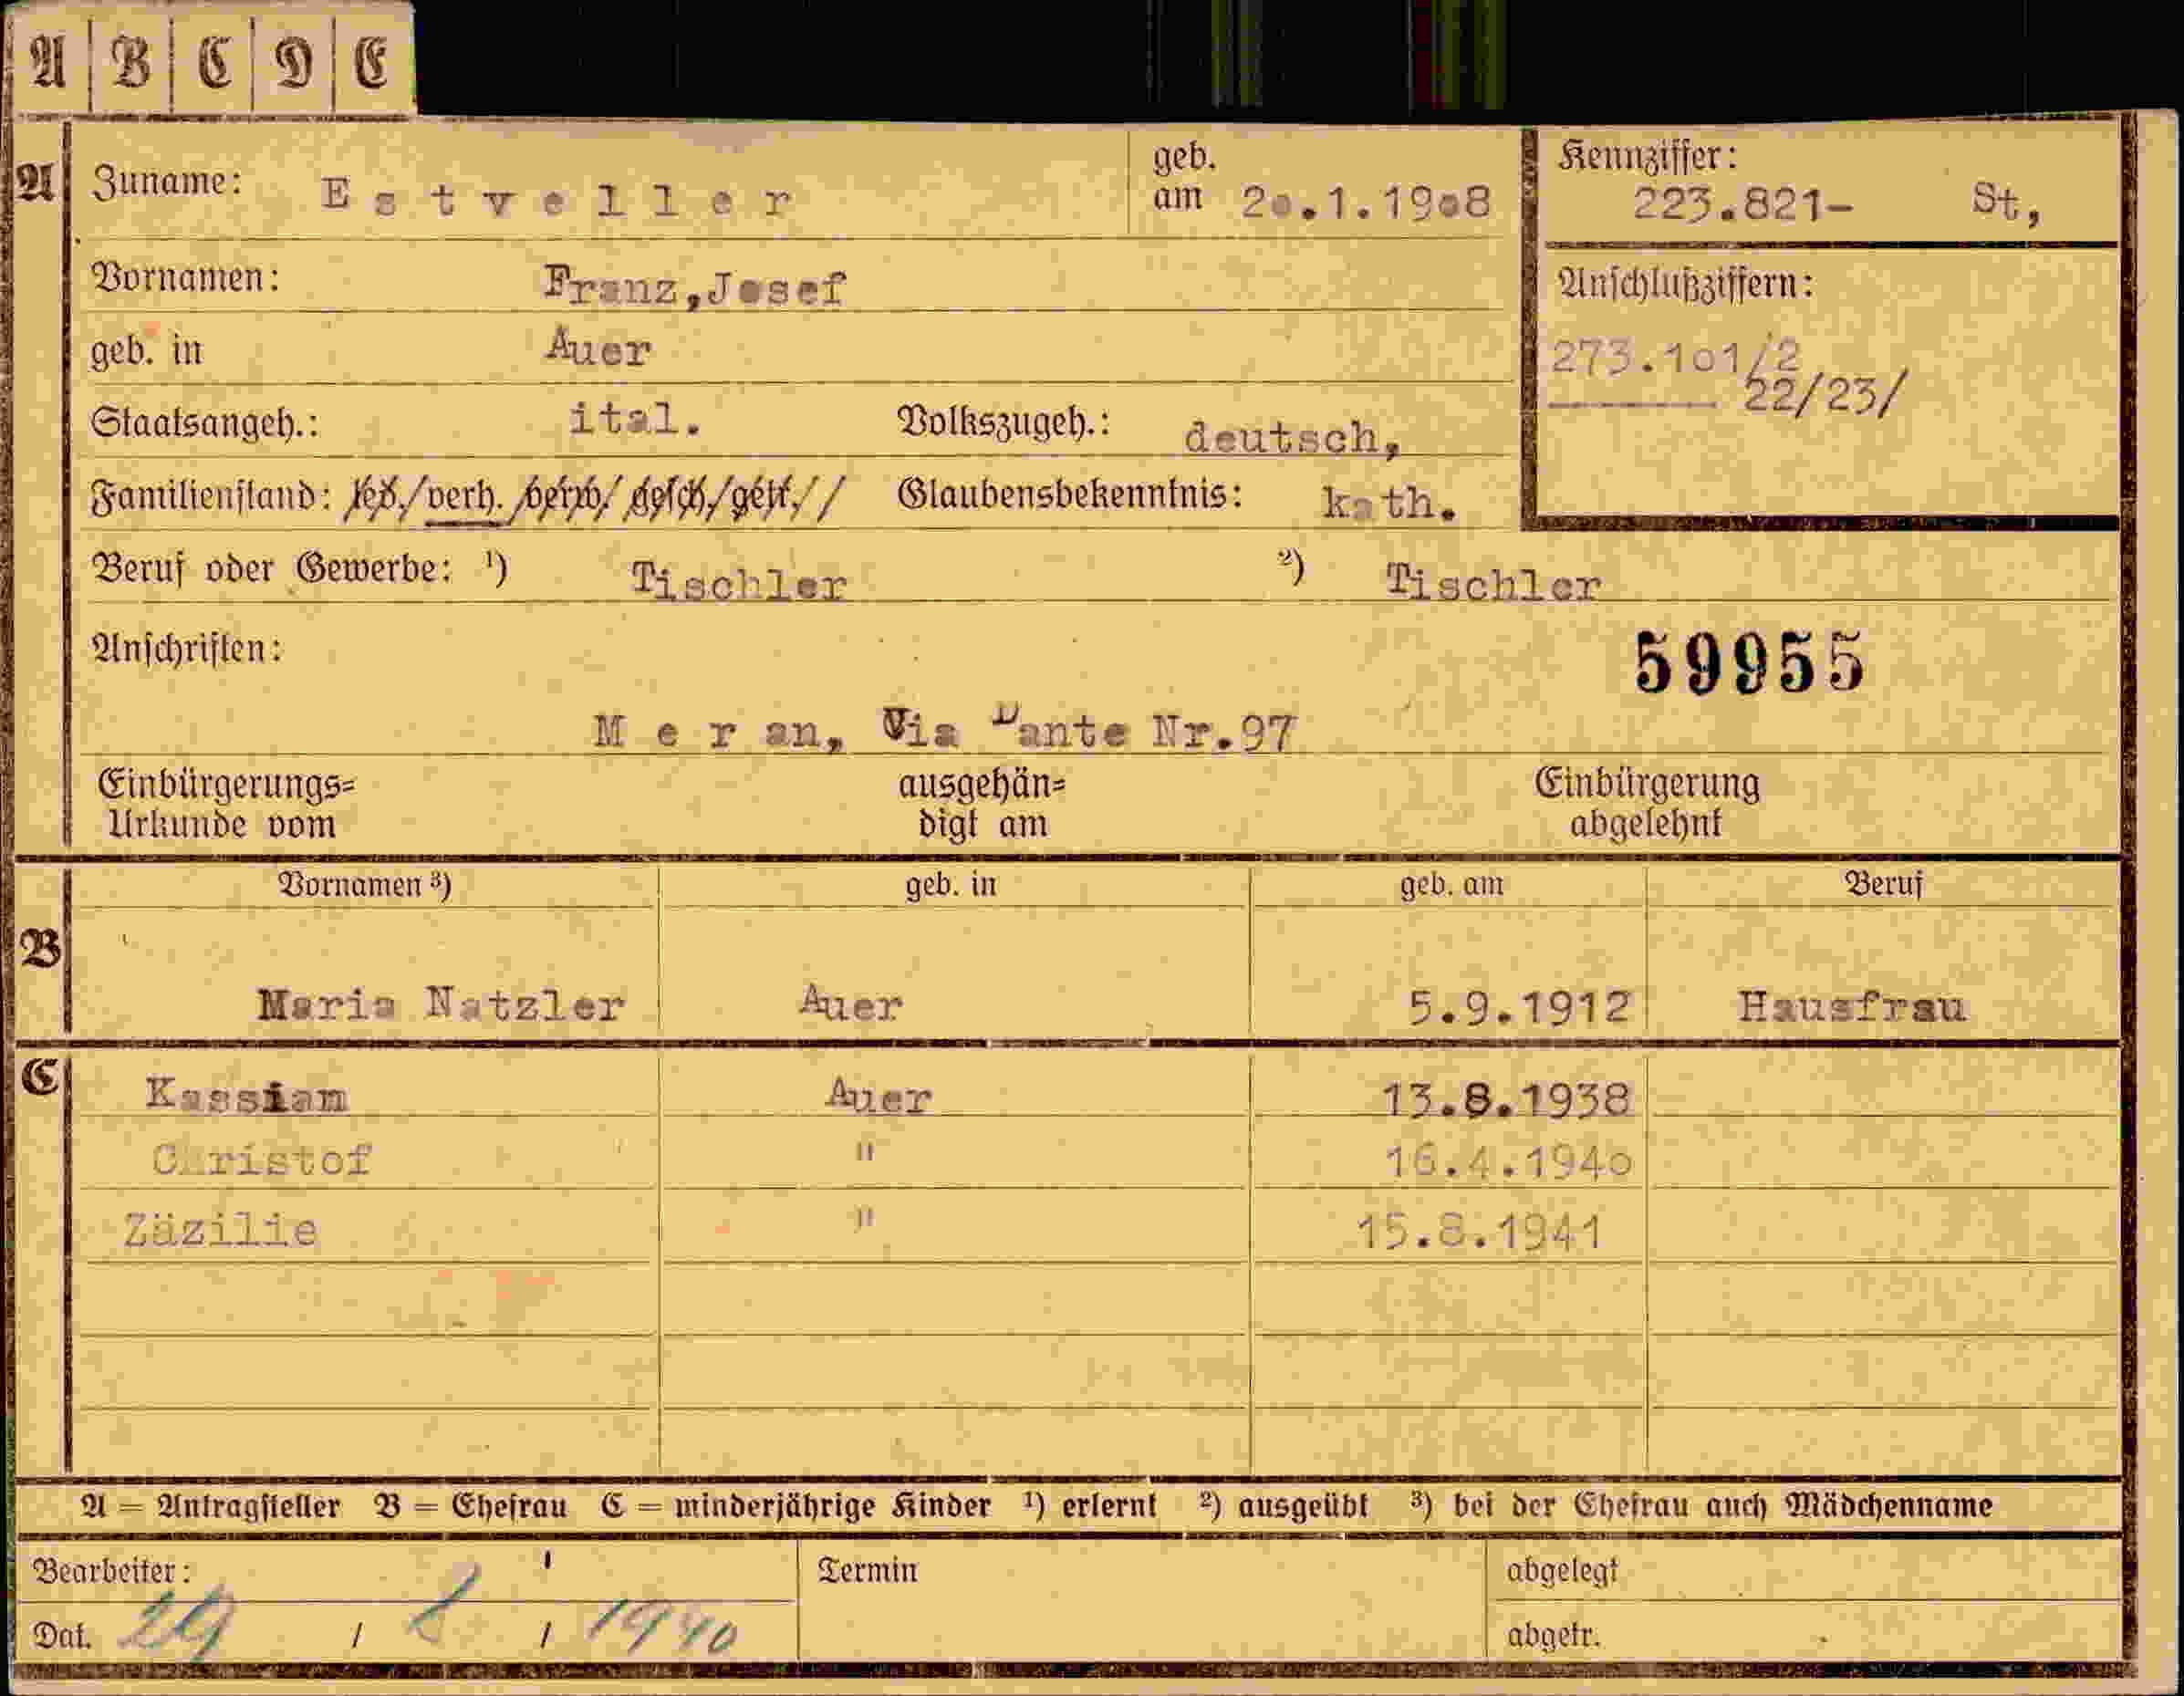 A B C D E
A Zuname: Estveller geb. am 2o.1.19o8 Kennziffer: 223.821- St,
Vornamen: Franz,Josef Anschlußziffern:
geb. in Auer 273.1o1/2
22/23/
Staatsangeh.: ital. Volkszugeh.: deutsch,
Familienstand: led./verh./verw/gesch./getr./ / Glaubensbekenntnis: kath.
Beruf oder Gewerbe: ¹) Tischler ²) Tischler
Anschriften: 59955
M e r an, Via Dante Nr.97
Einbürgerungs= Urkunde vom ausgehän= digt am Einbürgerung abgelehnt
Vornamen ³) geb. in geb. am Beruf
B Maria Natzler Auer 5.9.1912 Hausfrau
C Kassian Auer 13.8.1938
Christof " 16.4.194o
Zäzilie " 15.8.1941
A = Antragsteller B = Ehefrau C = minderjährige Kinder ¹) erlernt ²) ausgeübt ³) bei der Ehefrau auch Mädchenname
Bearbeiter: Termin abgelegt
Dat. 29 / 8 / 1940 abgetr.